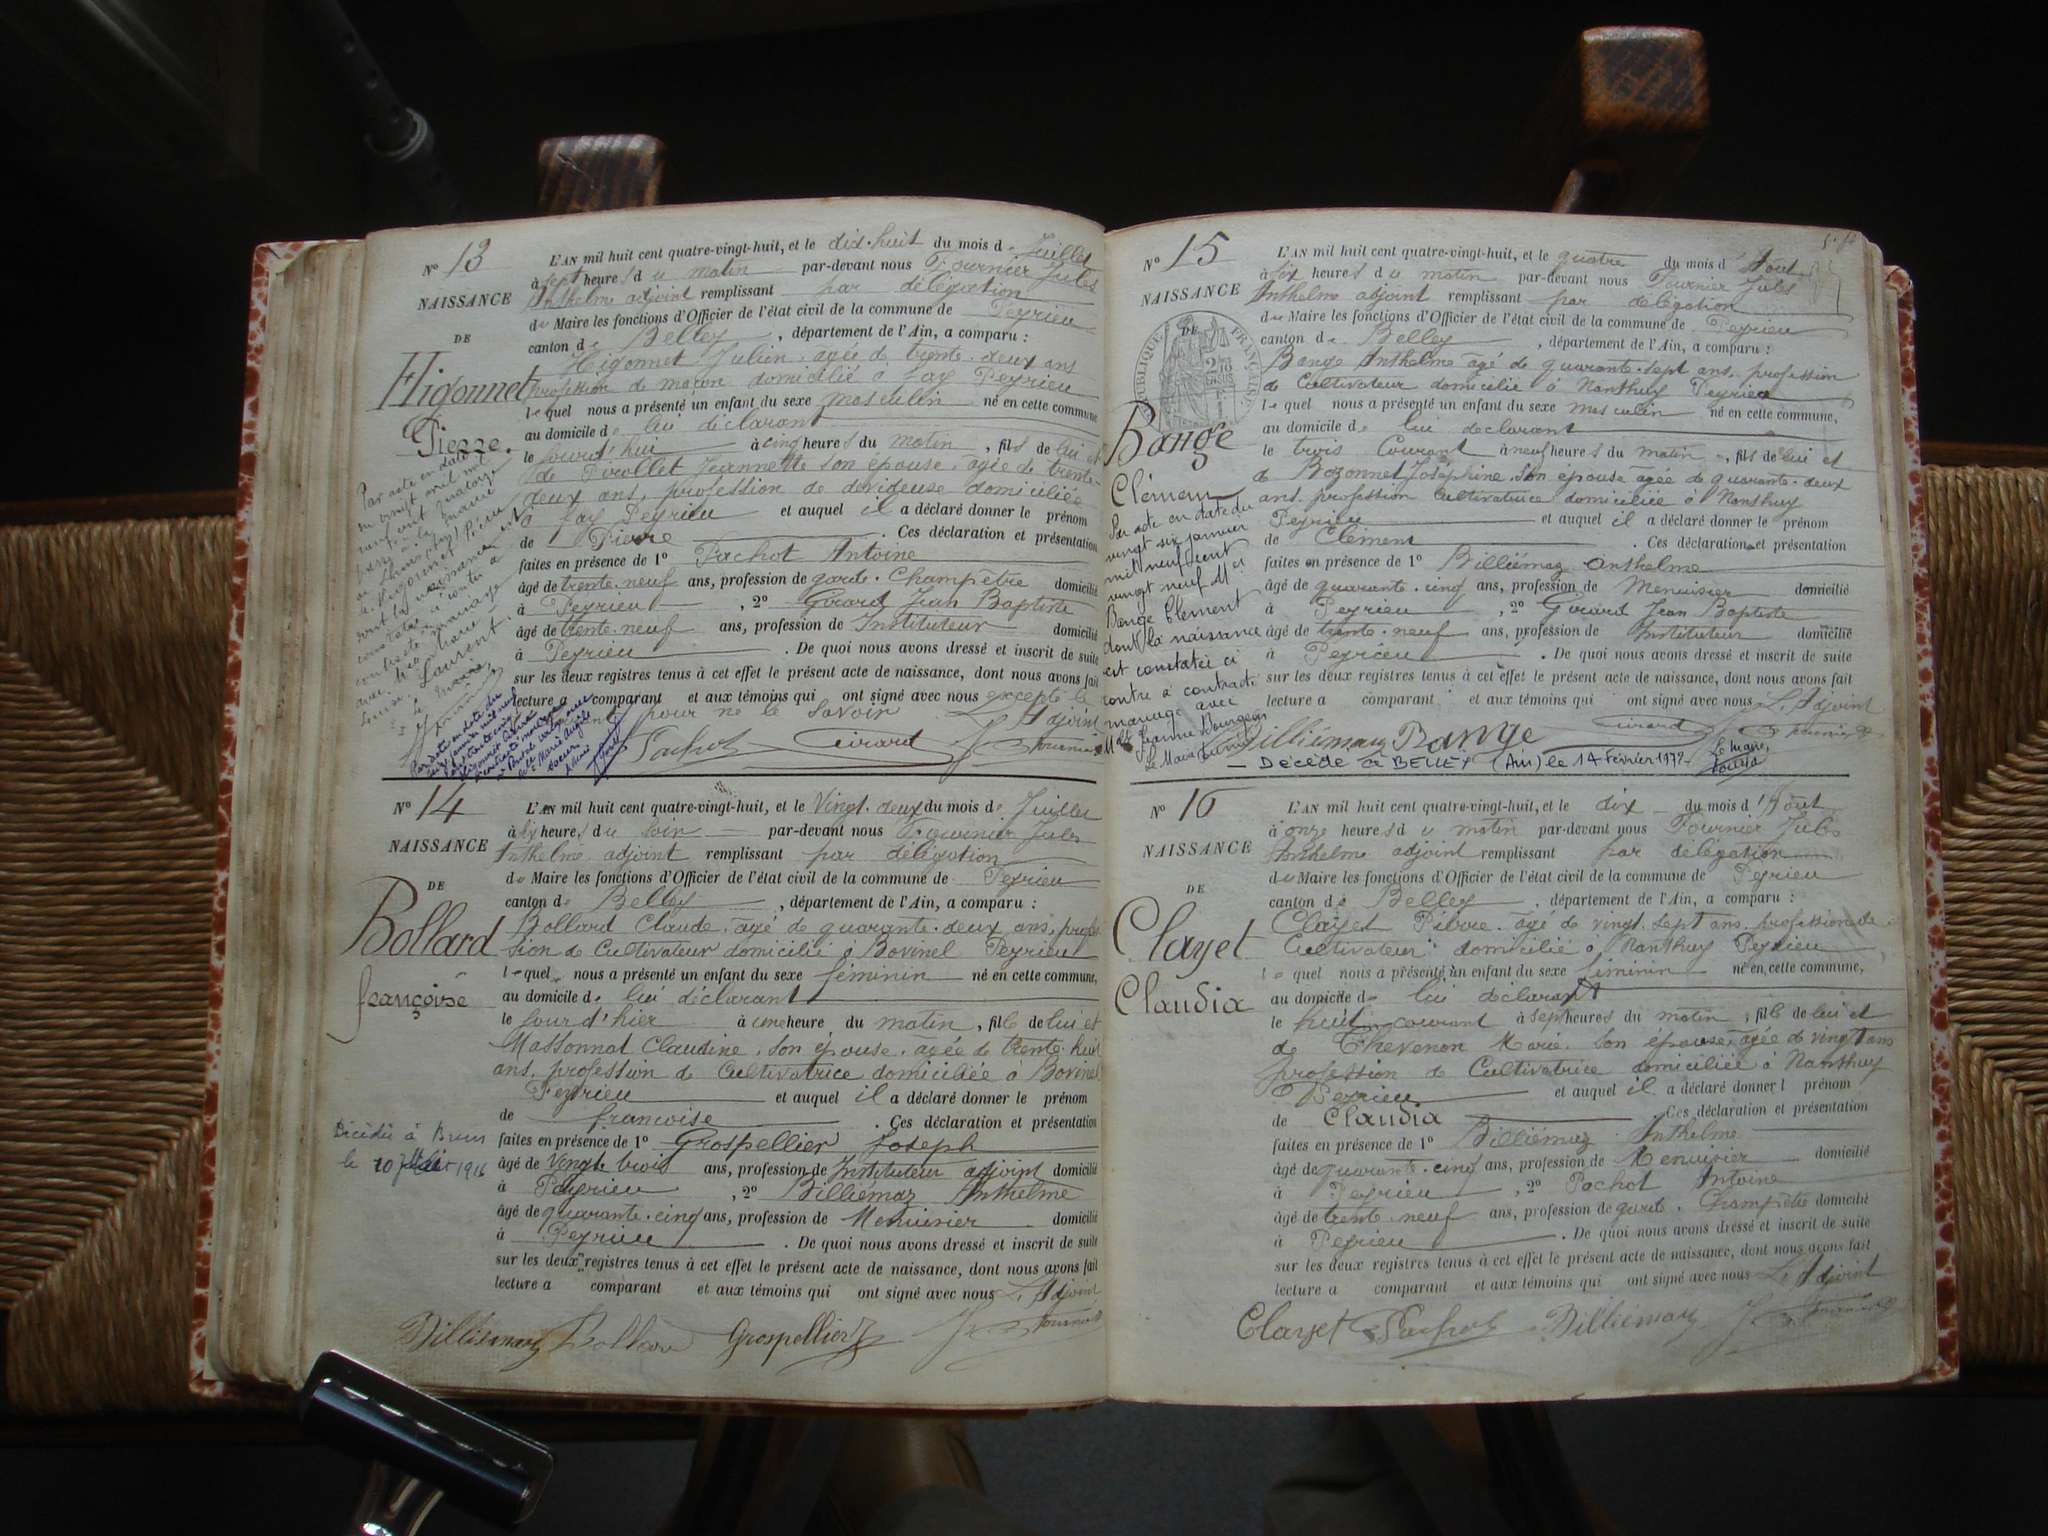 N° 13
NAISSANCE
DE
Higonnet
Pierre.
L'AN mil huit cent quatre-vingt-huit, et le dix-huit du mois de Juillet
à sept heures du matin par-devant nous Fournier Jules
Anthelme adjoint remplissant par délégation
du Maire les fonctions d'Officier de l'état civil de la commune de Peyrieu
canton de Belley, département de l'Ain, a comparu :
Higonnet Julien, agée de trente-deux ans
profession de maçon domicilié à fay Peyrieu
lequel nous a présenté un enfant du sexe masculin né en cette commune
au domicile de lui déclarant
le jourd'hui à cinq heures du matin, fils de lui et
de Pirollet Jeannette son épouse, agée de trente-
deux ans, profession de dévideuse domiciliée
à fay Peyrieu et auquel il a déclaré donner le prénom
de Pierre. Ces déclaration et présentation
faites en présence de 1° Pachot Antoine
âgé de trente-neuf ans, profession de garde-Champêtre domicilié
à Peyrieu, 2° Girard Jean Baptiste
âgé de trente-neuf ans, profession de Instituteur domicilié
à Peyrieu. De quoi nous avons dressé et inscrit de suite
sur les deux registres tenus à cet effet le présent acte de naissance, dont nous avons fait
lecture a comparant et aux témoins qui ont signé avec nous excepté le
pour ne le savoir L'Adjoint
Pachot Girard Fournier
Par acte en date
du vingt avril mil
neuf cent quatorze
la mairie
Higonnet Pierre
dont la naissance est
contracté mariage
avec
Laurent.
N° 14
NAISSANCE
DE
Bollard
françoise
L'AN mil huit cent quatre-vingt-huit, et le Vingt-deux du mois de Juillet
à six heures du soir par-devant nous Fournier Jules
Anthelme adjoint remplissant par délégation
du Maire les fonctions d'Officier de l'état civil de la commune de Peyrieu
canton de Belley, département de l'Ain, a comparu :
Bollard Claude, agé de quarante-deux ans, profes
sion de Cultivateur domicilié à Bovinel Peyrieu
lequel nous a présenté un enfant du sexe féminin né en cette commune,
au domicile de lui déclarant
le jour d'hier à une heure du matin, fille de lui et
Massonnat Claudine, son épouse, agée de trente-huit
ans, profession de Cultivatrice domiciliée à Bovinel
Peyrieu et auquel il a déclaré donner le prénom
de françoise. Ces déclaration et présentation
faites en présence de 1° Grospellier Joseph
âgé de vingt-trois ans, profession de Instituteur adjoint domicilié
à Peyrieu, 2° Billiémaz Anthelme
âgé de quarante-cinq ans, profession de Menuisier domicilié
à Peyrieu. De quoi nous avons dressé et inscrit de suite
sur les deux registres tenus à cet effet le présent acte de naissance, dont nous avons fait
lecture a comparant et aux témoins qui ont signé avec nous L'Adjoint
Billiémaz Bollard Grospellier J. Fournier
Décédée à
le 10 1916
N° 15
NAISSANCE
DE
RÉPUBLIQUE FRANÇAISE
Bange
Clément
L'AN mil huit cent quatre-vingt-huit, et le quatre du mois d'Août
à six heures du matin par-devant nous Fournier Jules
Anthelme adjoint remplissant par délégation
du Maire les fonctions d'Officier de l'état civil de la commune de Peyrieu
canton de Belley, département de l'Ain, a comparu :
Bange Anthelme agé de quarante-sept ans, profession
de Cultivateur domicilié à Nanthuy Peyrieu
lequel nous a présenté un enfant du sexe masculin né en cette commune,
au domicile de lui déclarant
le trois Courant à neuf heures du matin, fils de lui et
de Bozonnet Joséphine son épouse agée de quarante-deux
ans, profession Cultivatrice domiciliée à Nanthuy
Peyrieu et auquel il a déclaré donner le prénom
de Clément. Ces déclaration et présentation
faites en présence de 1° Billiémaz Anthelme
âgé de quarante-cinq ans, profession de Menuisier domicilié
à Peyrieu, 2° Girard Jean Baptiste
âgé de trente-neuf ans, profession de Instituteur domicilié
à Peyrieu. De quoi nous avons dressé et inscrit de suite
sur les deux registres tenus à cet effet le présent acte de naissance, dont nous avons fait
lecture a comparant et aux témoins qui ont signé avec nous L'Adjoint
Girard J. Fournier
Billiémaz Bange
Par acte en date du
vingt six janvier
mil neuf cent
vingt neuf
Bange Clément
dont la naissance
est constatée ci
contre a contracté
mariage avec
Jeanne Bourgeois
Le Maire
- Décédé à BELLEY (Ain) le 14 février 1972- Le Maire,
N° 16
NAISSANCE
DE
Clayet
Claudia
L'AN mil huit cent quatre-vingt-huit, et le dix du mois d'Août
à onze heures du matin par-devant nous Fournier Jules
Anthelme adjoint remplissant par délégation
du Maire les fonctions d'Officier de l'état civil de la commune de Peyrieu
canton de Belley, département de l'Ain, a comparu :
Clayet Pierre, agé de vingt-sept ans, profession de
Cultivateur domicilié à Nanthuy Peyrieu
lequel nous a présenté un enfant du sexe féminin né en cette commune,
au domicile de lui déclarant
le huit courant à sept heures du matin, fille de lui et
de Thévenon Marie, son épouse, agée de vingt ans
profession de Cultivatrice domiciliée à Nanthuy
Peyrieu et auquel il a déclaré donner l prénom
de Claudia. Ces déclaration et présentation
faites en présence de 1° Billiémaz Anthelme
âgé de quarante-cinq ans, profession de Menuisier domicilié
à Peyrieu, 2° Pachot Antoine
âgé de trente-neuf ans, profession de garde-Champêtre domicilié
à Peyrieu. De quoi nous avons dressé et inscrit de suite
sur les deux registres tenus à cet effet le présent acte de naissance, dont nous avons fait
lecture a comparant et aux témoins qui ont signé avec nous L'Adjoint
Clayet Pachot Billiémaz J. Fournier